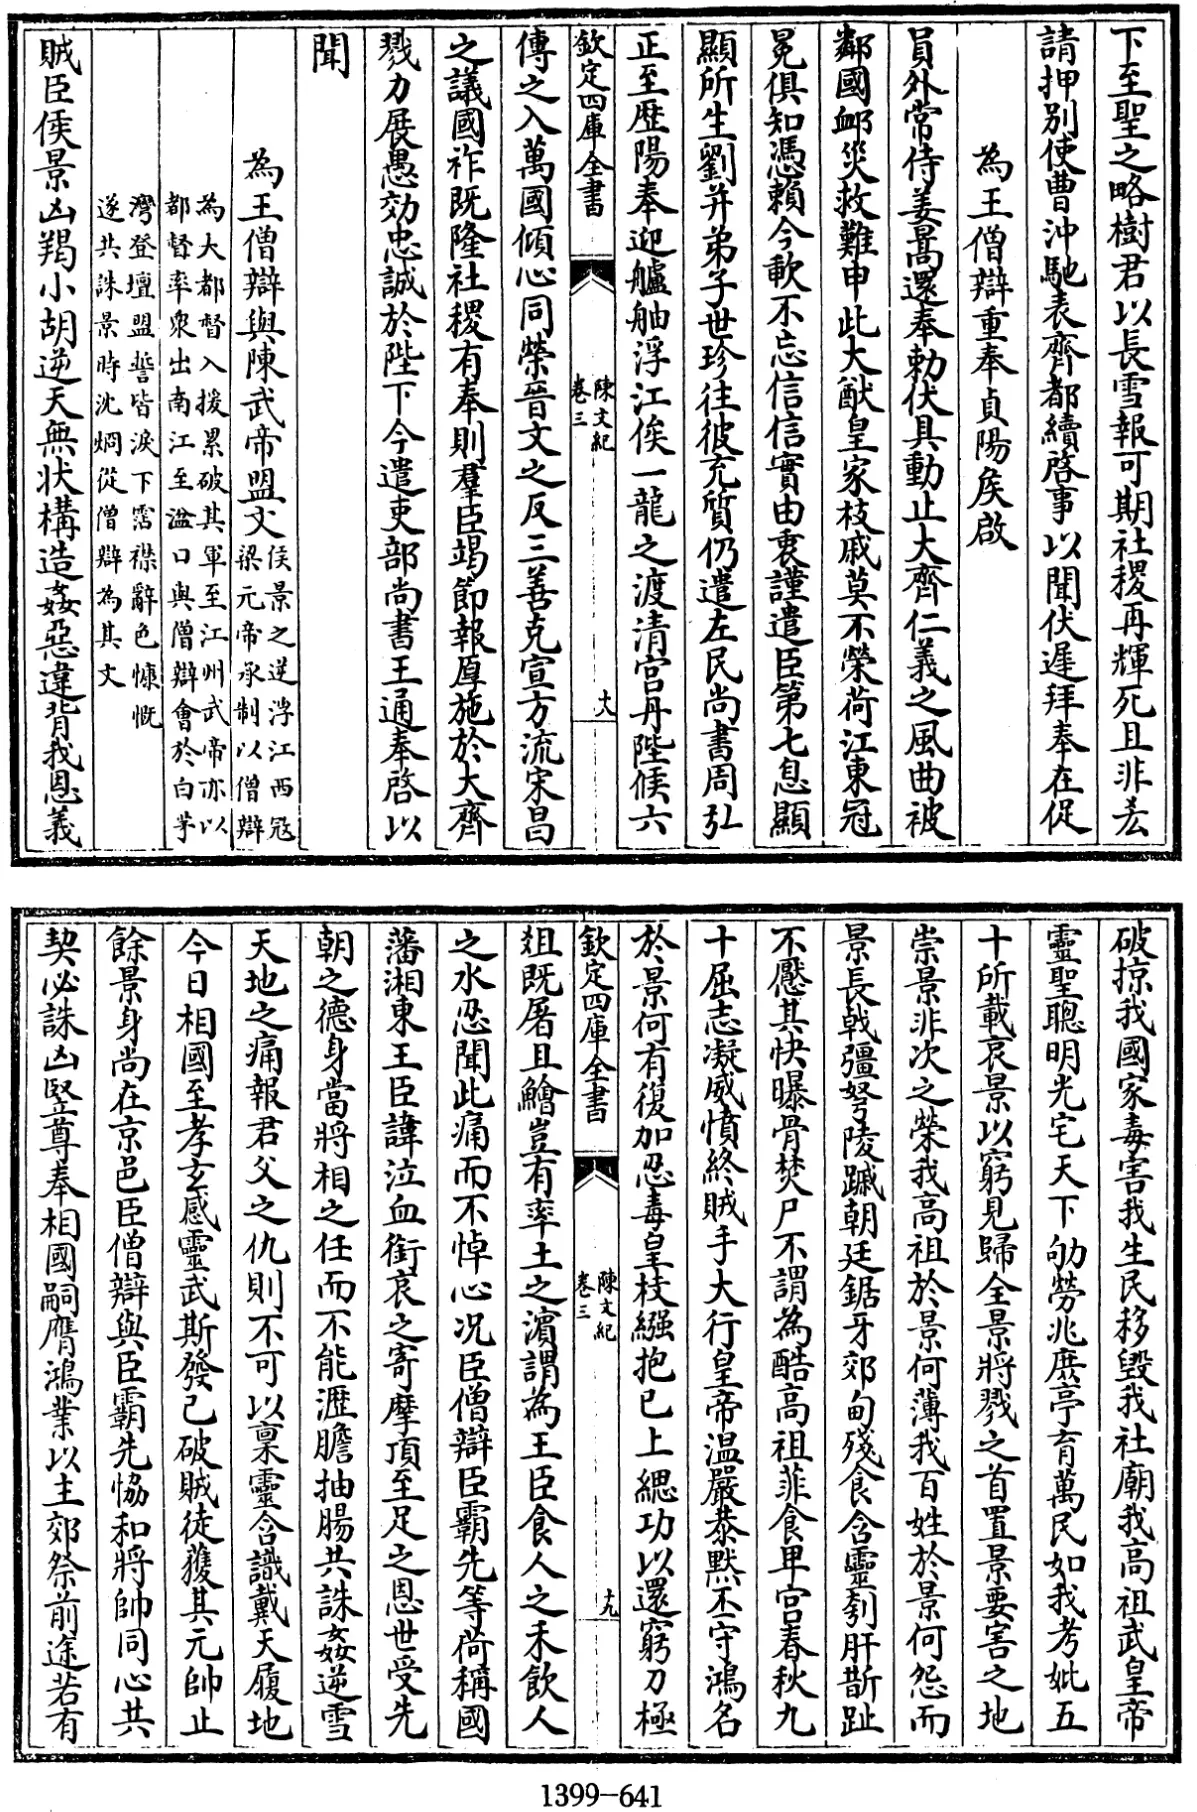 下至聖之略樹君以長雪報可期社稷再輝死且非表
請押别使曹沖馳表齊都續啓事以聞伏遲拜奉在促
為王僧辯重奉貞陽侯啟
員外常侍姜暠還奉勅伏具動止大齊仁義之風曲被
鄰國䘏災救難申此大猷皇家枝戚莫不榮荷江東冠
冕俱知憑賴今歃不忘信信實由衷謹遣臣第七息顯
顯所生劉并弟子世珍往彼充質仍遣左民尚書周弘
正至歷陽奉迎艫舳浮江俟一龍之渡清宮丹陛候六
欽定四庫全書
陳文紀
卷三
十八
傳之入萬國傾心同榮晉文之反三善克宣方流宋昌
之議國祚既隆社稷有奉則羣臣竭節報厚施於大齊
戮力展愚効忠誠於陛下今遣吏部尚書王通奉啓以
聞
為王僧辯與陳武帝盟文
侯景之逆浮江西寇
梁元帝承制以僧辯
為大都督入援累破其軍至江州武帝亦以
都督率衆出南江至湓口與僧辯會於白茅
灣登壇盟誓皆淚下霑襟辭色慷慨
遂共誅景時沈烱從僧辯為其文
賊臣侯景凶羯小胡逆天無狀構造姦惡違背我恩義
破掠我國家毒害我生民移毀我社廟我高祖武皇帝
靈聖聰明光宅天下劬勞兆庶亭育萬民如我考妣五
十所載哀景以窮見歸全景將戮之首置景要害之地
崇景非次之榮我高祖於景何薄我百姓於景何怨而
景長戟彊弩陵蹴朝廷鋸牙郊甸殘食含靈刳肝斮趾
不厭其快曝骨焚尸不謂為酷高祖菲食卑宮春秋九
十屈志凝威憤終賊手大行皇帝温嚴恭默丕守鴻名
於景何有復加忍毒皇枝繈抱已上緦功以還窮刀極
欽定四庫全書
陳文紀
卷三
十九
俎既屠且鱠豈有率土之濱謂為王臣食人之禾飲人
之水忍聞此痛而不悼心况臣僧辯臣霸先等荷稱國
藩湘東王臣諱泣血銜哀之寄摩頂至足之恩世受先
朝之德身當將相之任而不能瀝膽抽腸共誅姦逆雪
天地之痛報君父之仇則不可以禀靈含識戴天履地
今日相國至孝玄感靈武斯發已破賊徒獲其元帥止
餘景身尚在京邑臣僧辯與臣霸先恊和將帥同心共
契必誅凶竪尊奉相國嗣膺鴻業以主郊祭前途若有
1399-641